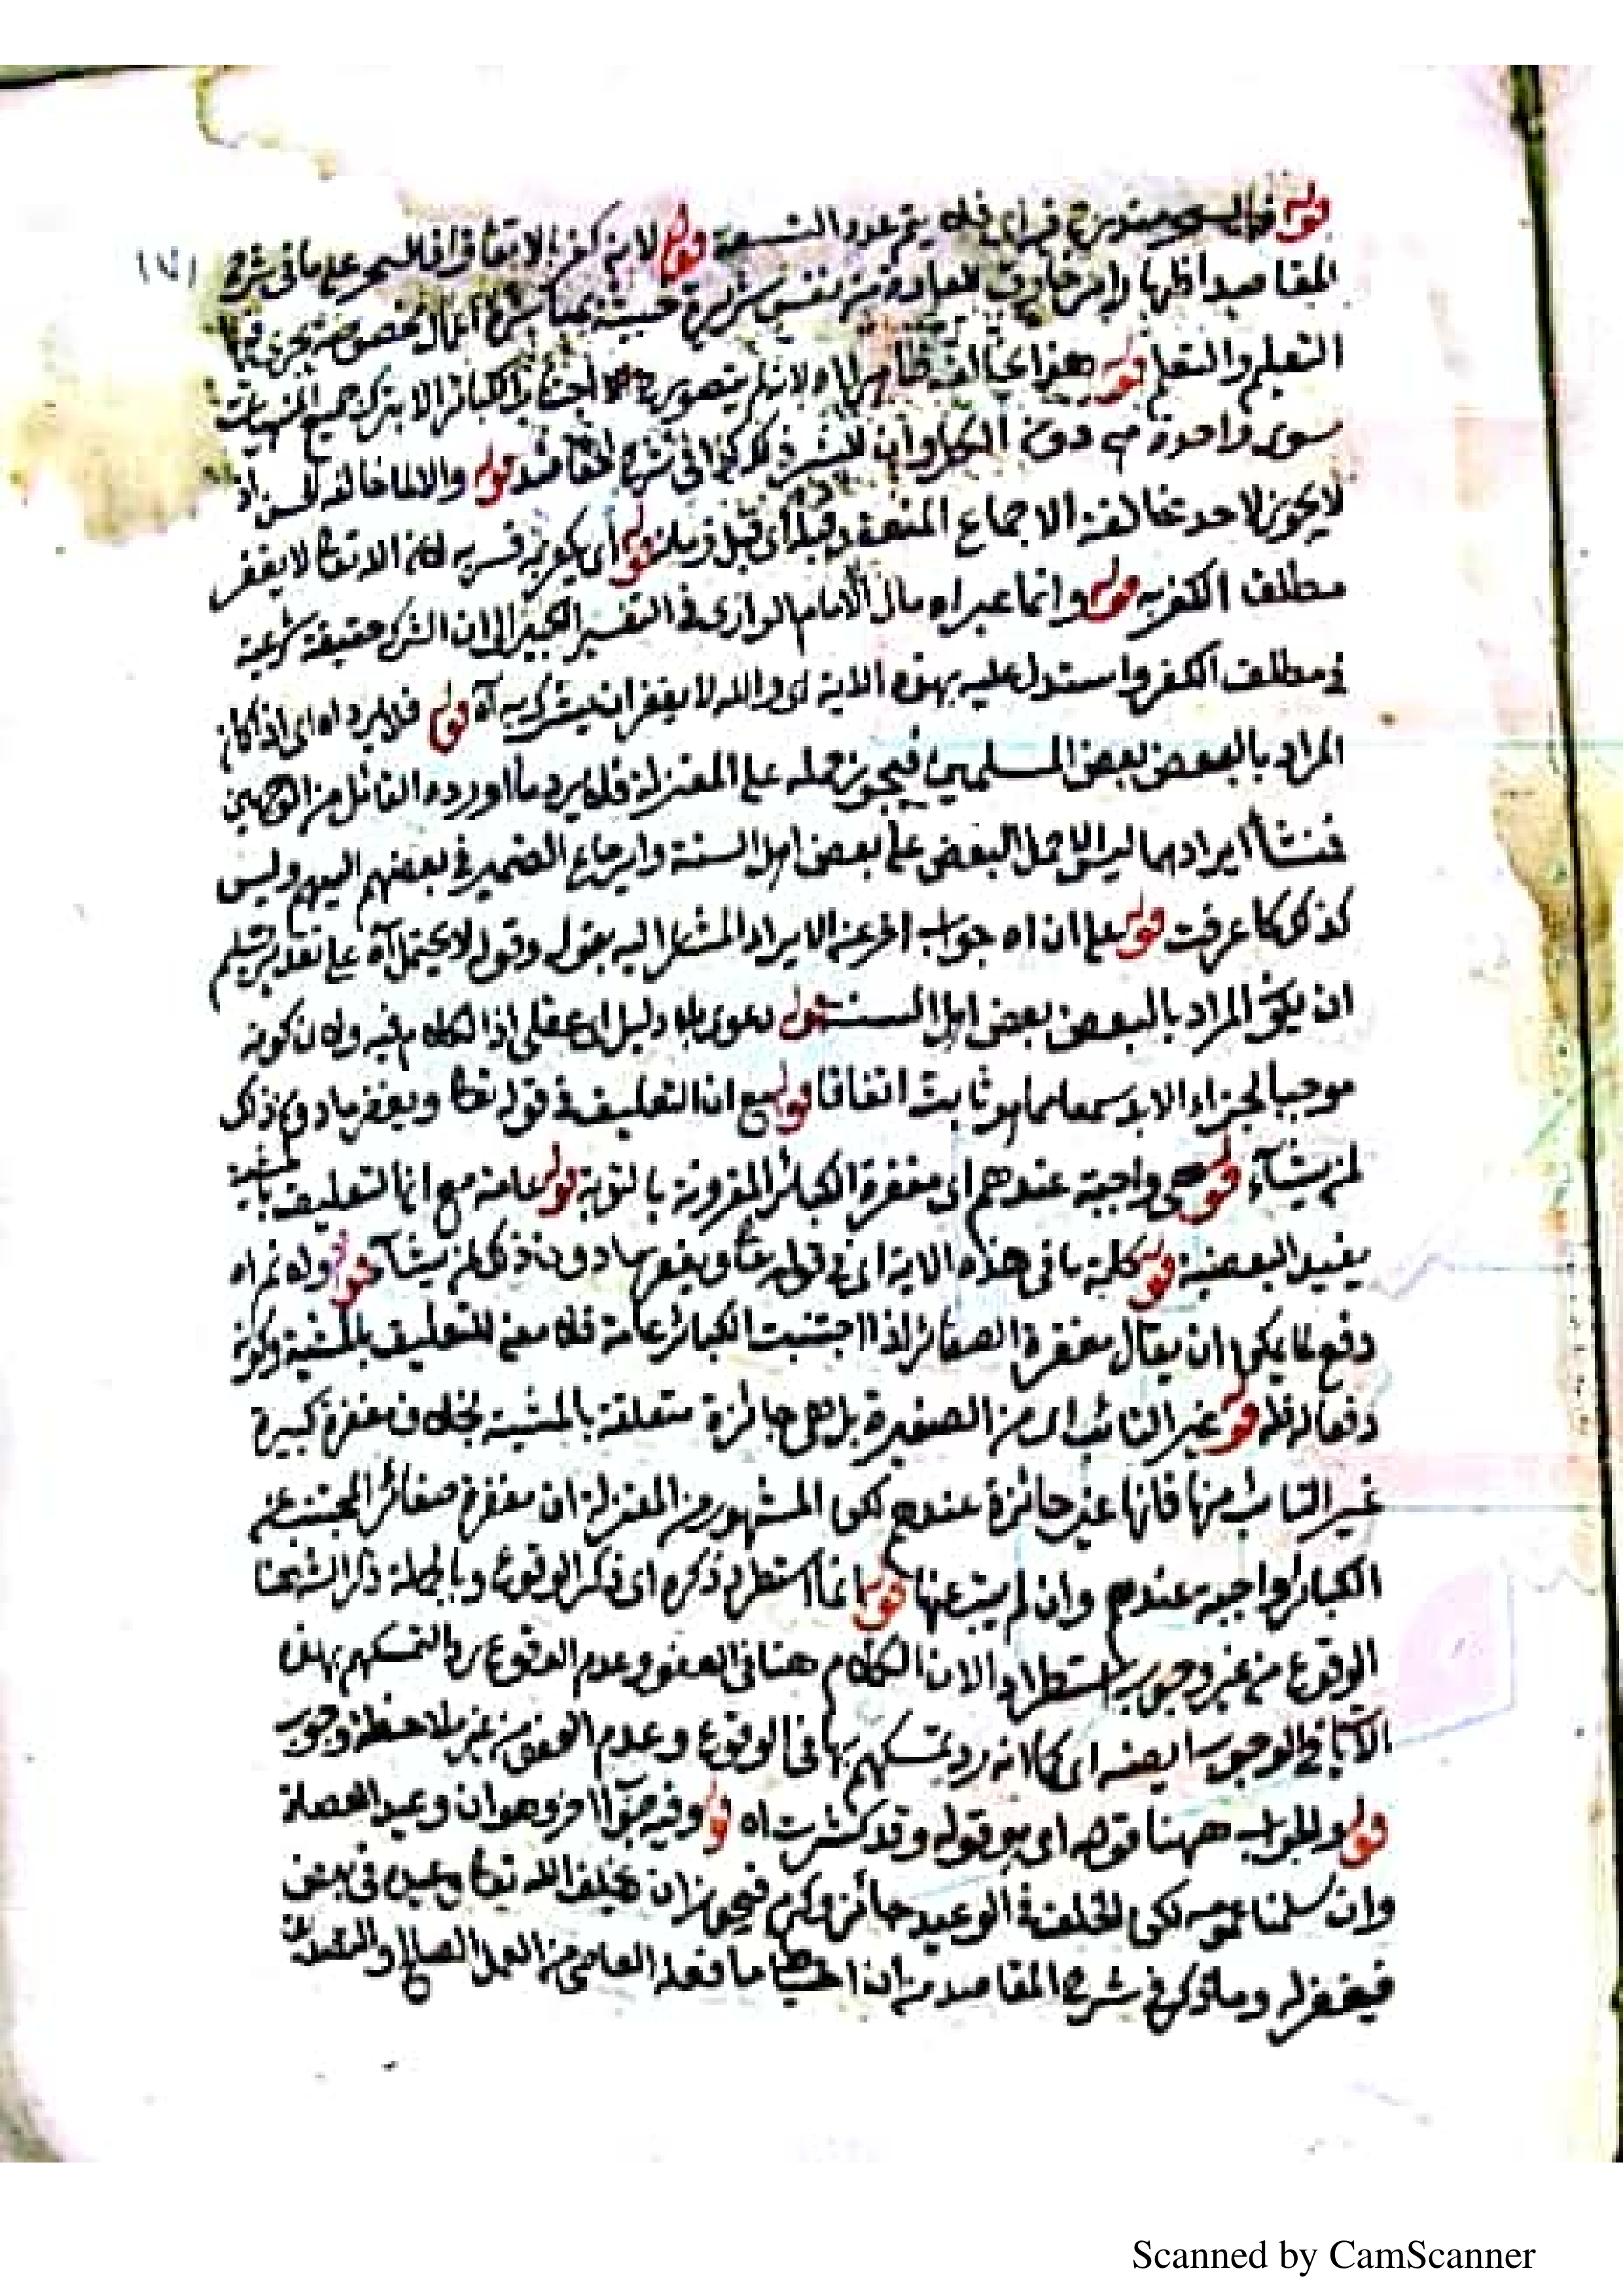 قوله فالسحر مندرج فيه اى فلا يتم عدد التسعة قوله لانه كفر بالاتفاق فالسحر على ما فى شرح
(٧)
المقاصد اظهار امر خارق للعادة من نفس شريرة خبيثة بمباشرة اعمال مخصوصة يجرى فيها
التعليم والتعلم قوله هذا يخالف ظاهر اه لانه لم يتصور اجتناب الكبائر الا بترك جميع المنهيات
سوى واحدة هى دون الكل وأن للبشر ذلك كذا فى شرح المقاصد قوله والا لما خالفه الحسن اذ
لا يجوز لاحد مخالفة الاجماع المنعقد قبله أى قبل زمانه قوله أى يكفر به فسر به لان الله تعالى لا يغفر
مطلق الكفر به قوله وانما عبر اه مال الامام الرازى فى التفسير الكبير الى ان الشرك حقيقة شرعية
فى مطلق الكفر واستدل عليه بهذه الاية اى والله لا يغفر ان يشرك به آه قوله فلا يرد اه اى اذا كان
المراد بالبعض بعض المسلمين فيجوز حمله على المعتزلة فلا يرد ما أورده القائل من الوجهين
فمنشأ ايرادهما ليس الا حمل البعض على بعض اهل السنة وارجاع الضمير فى بعضهم اليهم وليس
كذلك كما عرفت قوله على ان اه جواب اخر عن الايراد المشار اليه بقوله وقوله لا يحتمل آه على تقدير تسليم
ان يكون المراد بالبعض بعض اهل السنة قوله دعوى بلا دليل اى عقلى اذ الكلام فيه ولان كونه
موجبا لجزاء الابد سمعا مما هو ثابت اتفاقا قوله مع ان التعليق فى قوله تعالى ويغفر ما دون ذلك
لمن يشآء قوله هى واجبة عندهم اى مغفرة الكبائر المقرونة بالتوبة قوله عامة مع ان التعليق بالمشية
يفيد البعضية قوله كلمة ما فى هذه الاية اى فى قوله تعالى ويغفر ما دون ذلك لمن يشآء قوله ولا نم اه
دفع لما يمكن ان يقال مغفرة الصغائر اذا اجتنبت الكبائر عامة فلا معنى للتعليق بالمشية وكونه
دفعا له قوله غير التائب اى من الصغيرة بل هى جائزة متعلقة بالمشية بخلاف مغفرة كبيرة
غير التائب منها فانها غير جائزة عندهم لكن المشهور من المعتزلة ان مغفرة صغائر المجتنب عن
الكبائر واجبة عندهم وان لم يتب عنها قوله انما استطرد ذكره اى ذكر الوقوع وبالجملة ذكر الشرح هنا
الوقوع من غير وجوب استطرادا لان الكلام هنا فى العفو وعدم الوقوع رد التمسكهم بهذه
الآيات فى الوجوب ايضا اى كما انه رد تمسكهم بها فى الوقوع وعدم العفو من غير ملاحظة وجوب
قوله والجواب ههنا قوله اى هو قوله وقد كثرت اه قوله وفيه جواب اخر وهو ان وعيد العصاة
وان سلمنا عمومه لكن الخلف فى الوعيد جائز وكرم فيجوز ان يخلف الله تعالى وعيده فى بعض
فيغفر له وما ذكر فى شرح المقاصد من ان احباط ما فعله العاصى من العمل الصالح والتصديق
Scanned by CamScanner